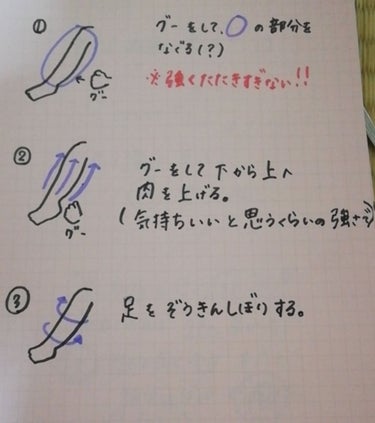 ① グーをして、○の部分を
なぐる(?)
※強くたたきすぎない!!
グー
② グーをして下から上へ
肉を上げる。
(気持ちいいと思うくらいの強さで)
グー
③ 足をぞうきんしぼりする。